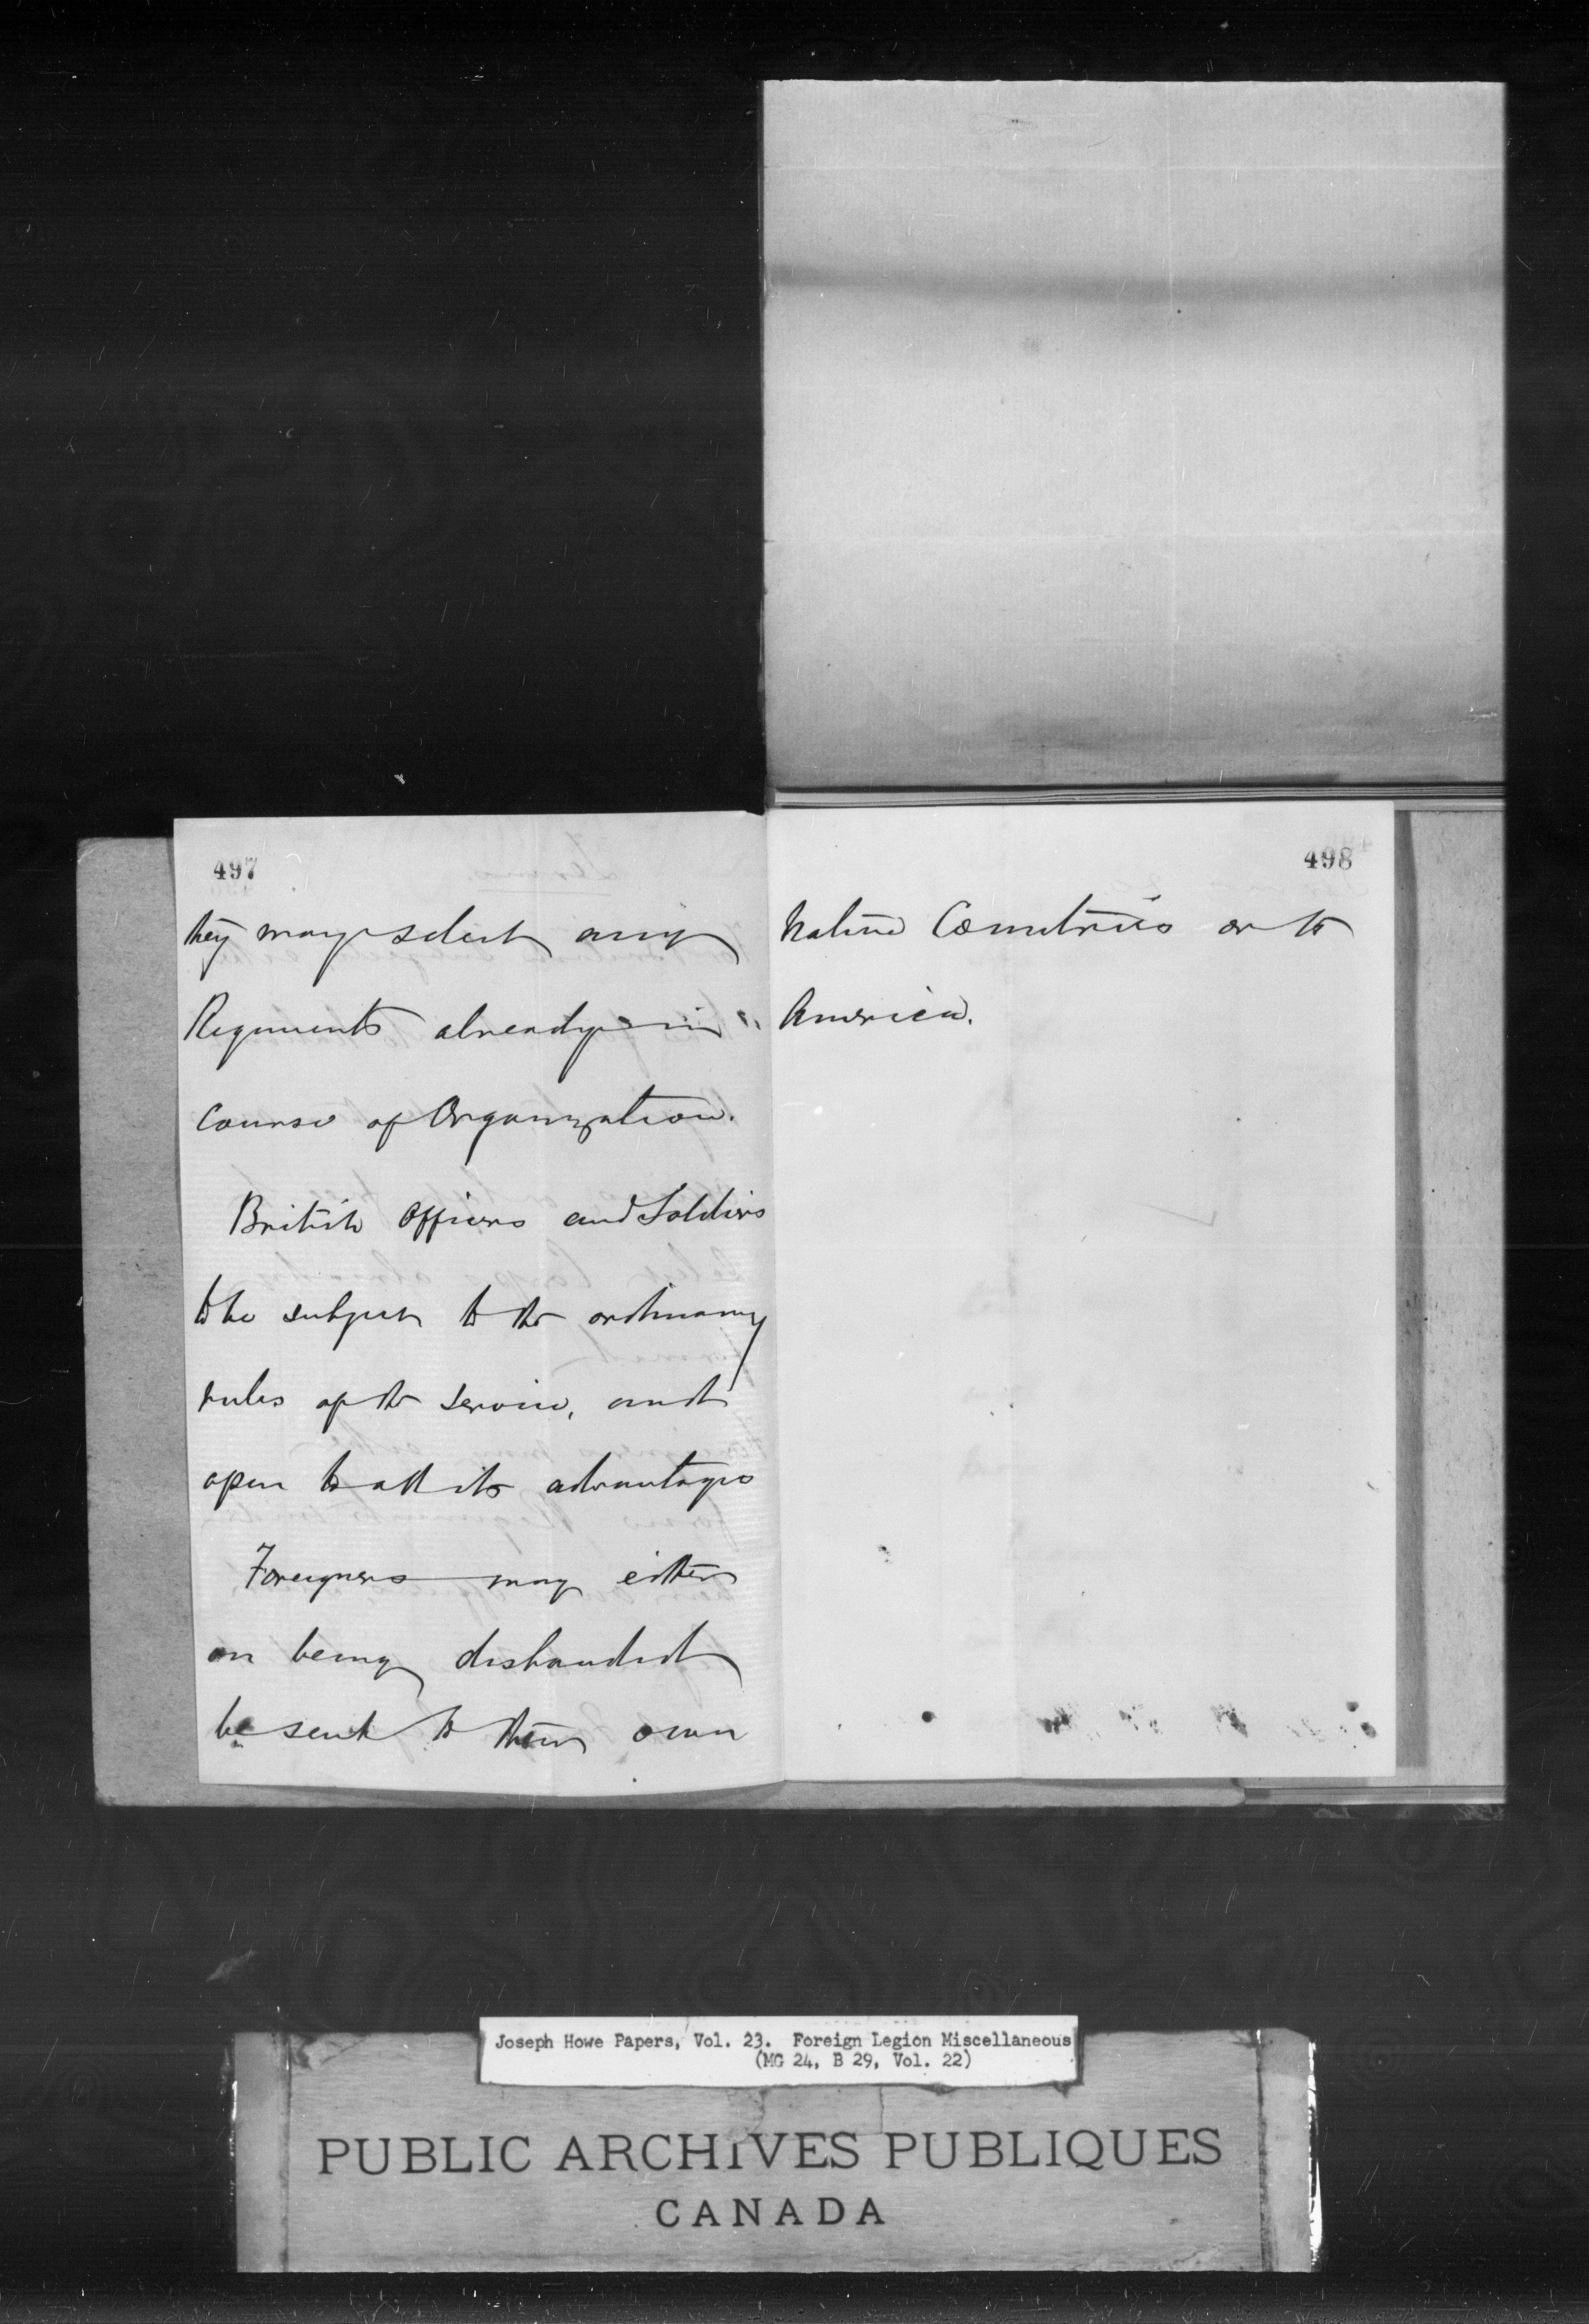 497
they may select any
Regiments already in
Course of Organization.
British Officers and Soldiers
to be subject to the ordinary
rules of the service, and
open to all its advantages
Foreigners may either
on being disbanded
be sent to their own
498
Native Countries or to
America.
Joseph Howe Papers, Vol. 23. Foreign Legion Miscellaneous
(MG 24, B 29, Vol. 22)
PUBLIC ARCHIVES PUBLIQUES
CANADA